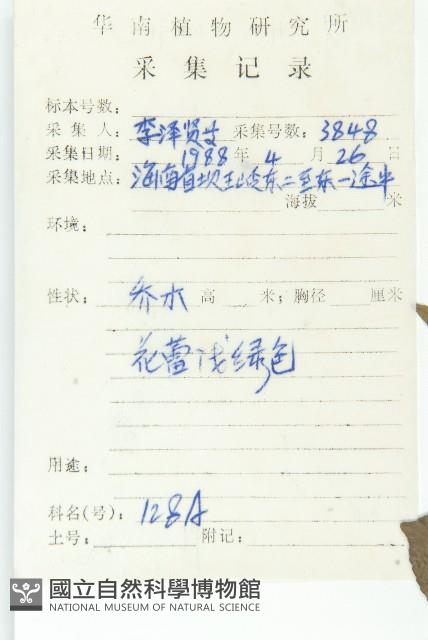 华南植物研究所
采集记录
标本号数：
采集人：李泽贤等 采集号数：3848
采集日期：1988年 4 月 26 日
采集地点：海南省坝王岭东二至东一途中
海拔 米
环境：
性状：乔木 高 米；胸径 厘米
花蕾浅绿色
用途：
科名(号)：128A
土号： 附记：
國立自然科學博物館
NATIONAL MUSEUM OF NATURAL SCIENCE